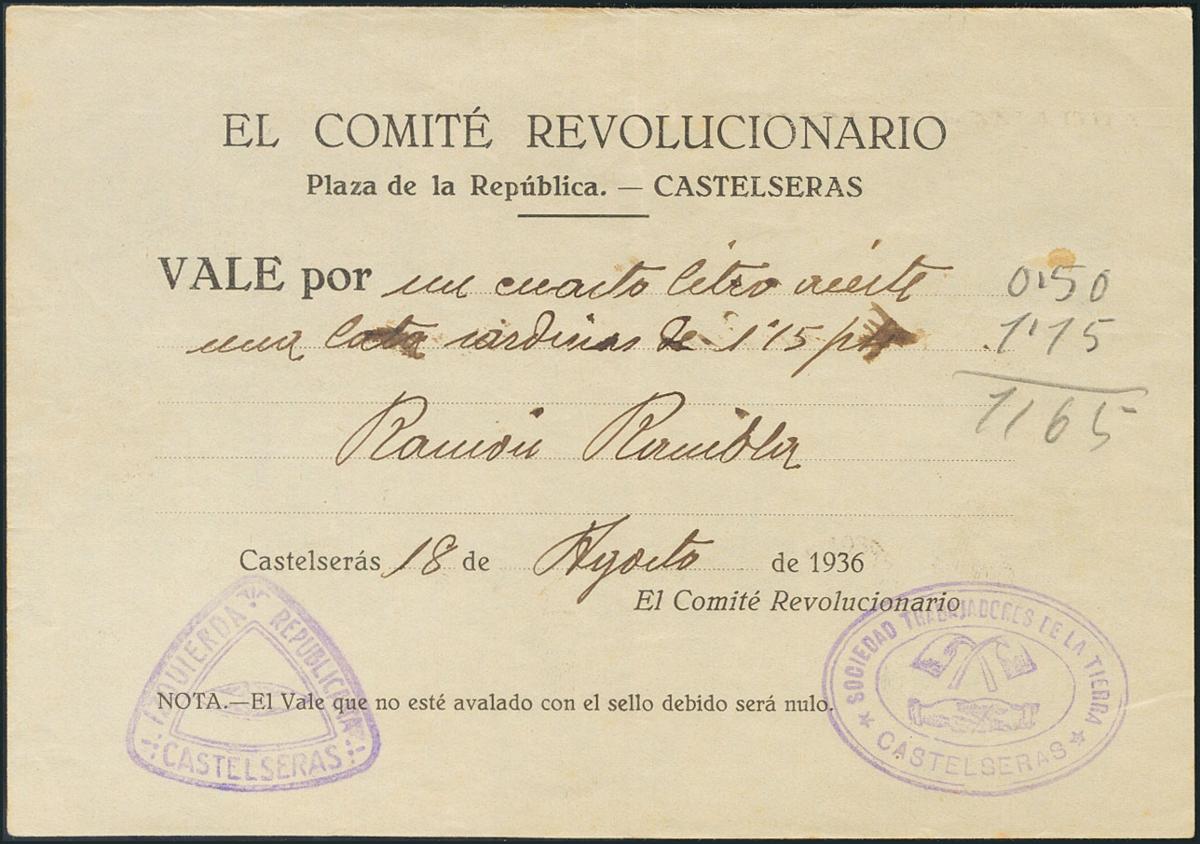 EL COMITÉ REVOLUCIONARIO
Plaza de la República. — CASTELSERAS
VALE por un cuarto litro aceite 0'50
una lata sardinas de 1'15 pts 1'15
1'65
Ramón Rambla
Castelserás 18 de Agosto de 1936
El Comité Revolucionario
IZQUIERDA REPUBLICANA
CASTELSERAS
SOCIEDAD TRABAJADORES DE LA TIERRA
CASTELSERAS
NOTA.—El Vale que no esté avalado con el sello debido será nulo.